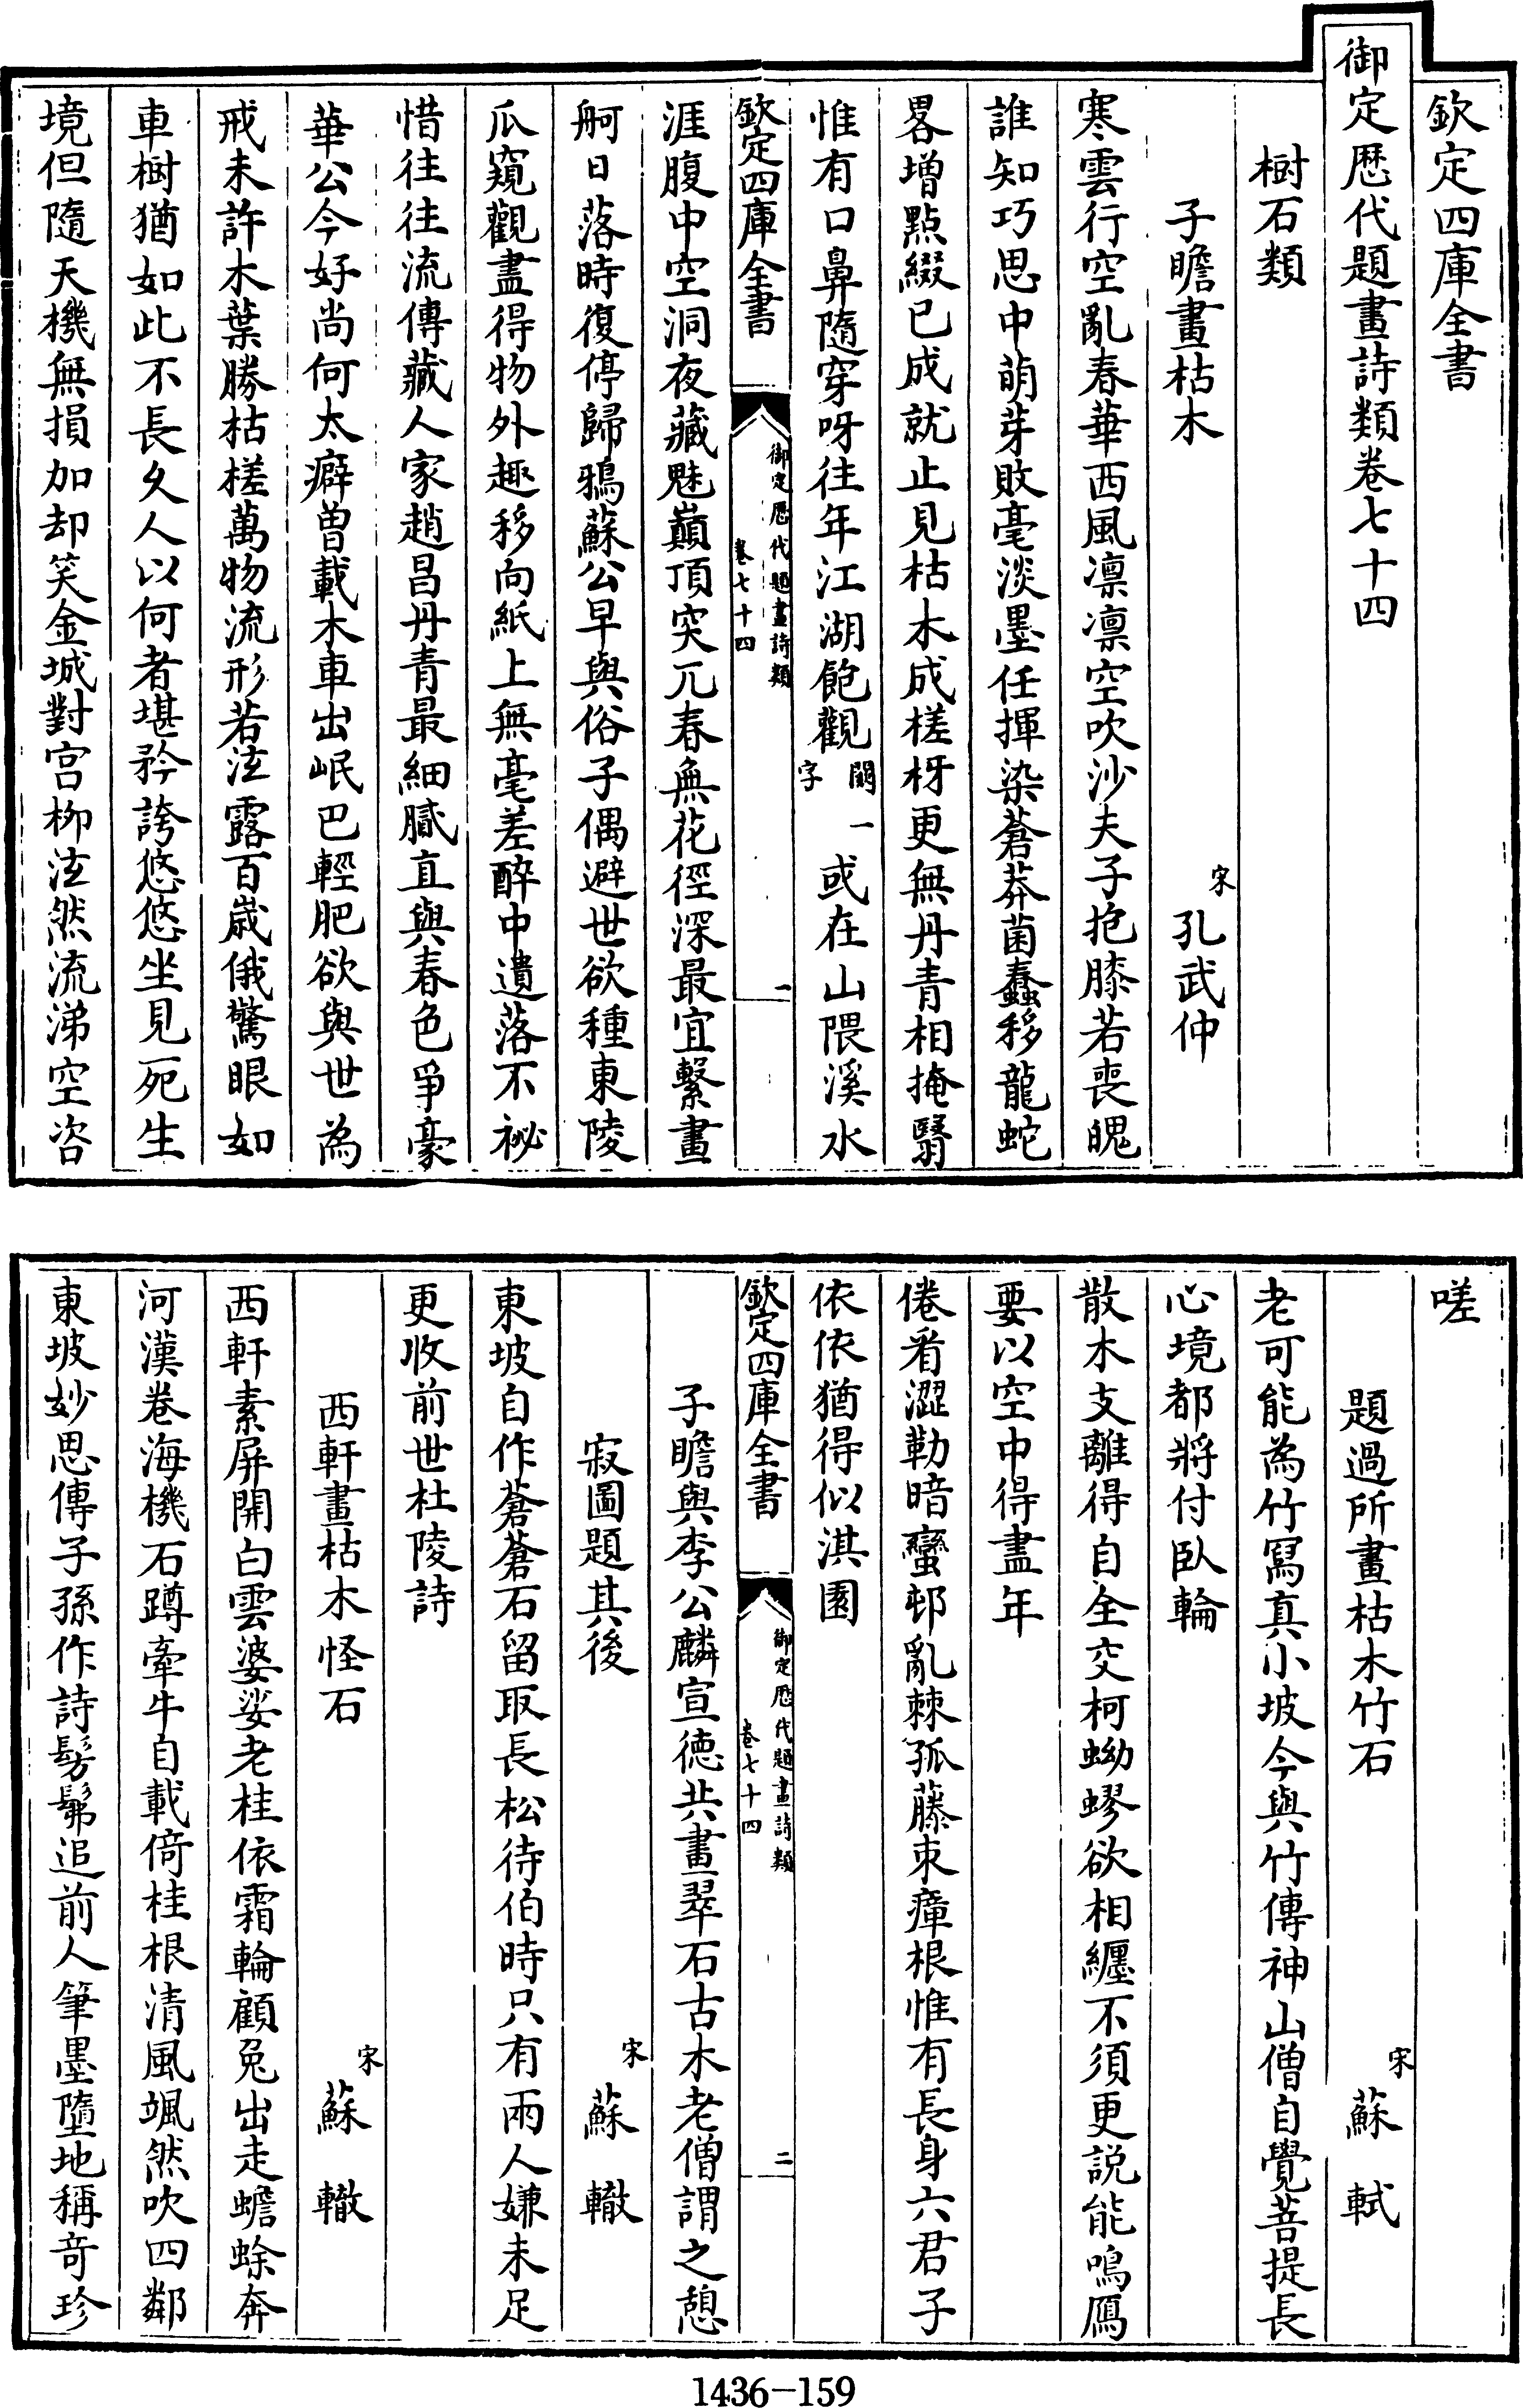 欽定四庫全書
御定歴代題畫詩類卷七十四
樹石類
子瞻畫枯木
宋
孔武仲
寒雲行空亂春華西風凛凛空吹沙夫子抱膝若喪魄
誰知巧思中萌芽敗毫淡墨任揮染蒼莽菌蠢移龍蛇
畧増點綴已成就止見枯木成槎枒更無丹青相掩翳
惟有口鼻隨穿呀往年江湖飽觀
闕
字
一或在山隈溪水
欽定四庫全書
御定歴代題畫詩類
卷七十四
一
涯腹中空洞夜藏魅巔頂突兀春無花徑深最宜繫畫
舸日落時復停歸鴉蘇公早與俗子偶避世欲種東陵
瓜窺觀盡得物外趣移向紙上無毫差醉中遺落不祕
惜往往流傳藏人家趙昌丹青最細膩直與春色爭豪
華公今好尚何太癖曽載木車出岷巴輕肥欲與世為
戒未許木葉勝枯槎萬物流形若泫露百歳俄驚眼如
車樹猶如此不長久人以何者堪矜誇悠悠坐見死生
境但隨天機無損加却笑金城對宫柳泫然流涕空咨
嗟
題過所畫枯木竹石
宋
蘇軾
老可能為竹寫真小坡今與竹傳神山僧自覺菩提長
心境都將付臥輪
散木支離得自全交柯蚴蟉欲相纒不須更説能鳴鴈
要以空中得盡年
倦看澀勒暗蠻邨亂棘孤藤束瘴根惟有長身六君子
依依猶得似淇園
欽定四庫全書
御定歴代題畫詩類
卷七十四
二
子瞻與李公麟宣德共畫翠石古木老僧謂之憩
寂圖題其後
宋
蘇轍
東坡自作蒼蒼石留取長松待伯時只有兩人嫌未足
更收前世杜陵詩
西軒畫枯木怪石
宋
蘇轍
西軒素屏開白雲婆娑老桂依霜輪顧兔出走蟾蜍奔
河漢卷海機石蹲牽牛自載倚桂根清風颯然吹四鄰
東坡妙思傳子孫作詩髣髴追前人筆墨墮地稱奇珍
1436-159